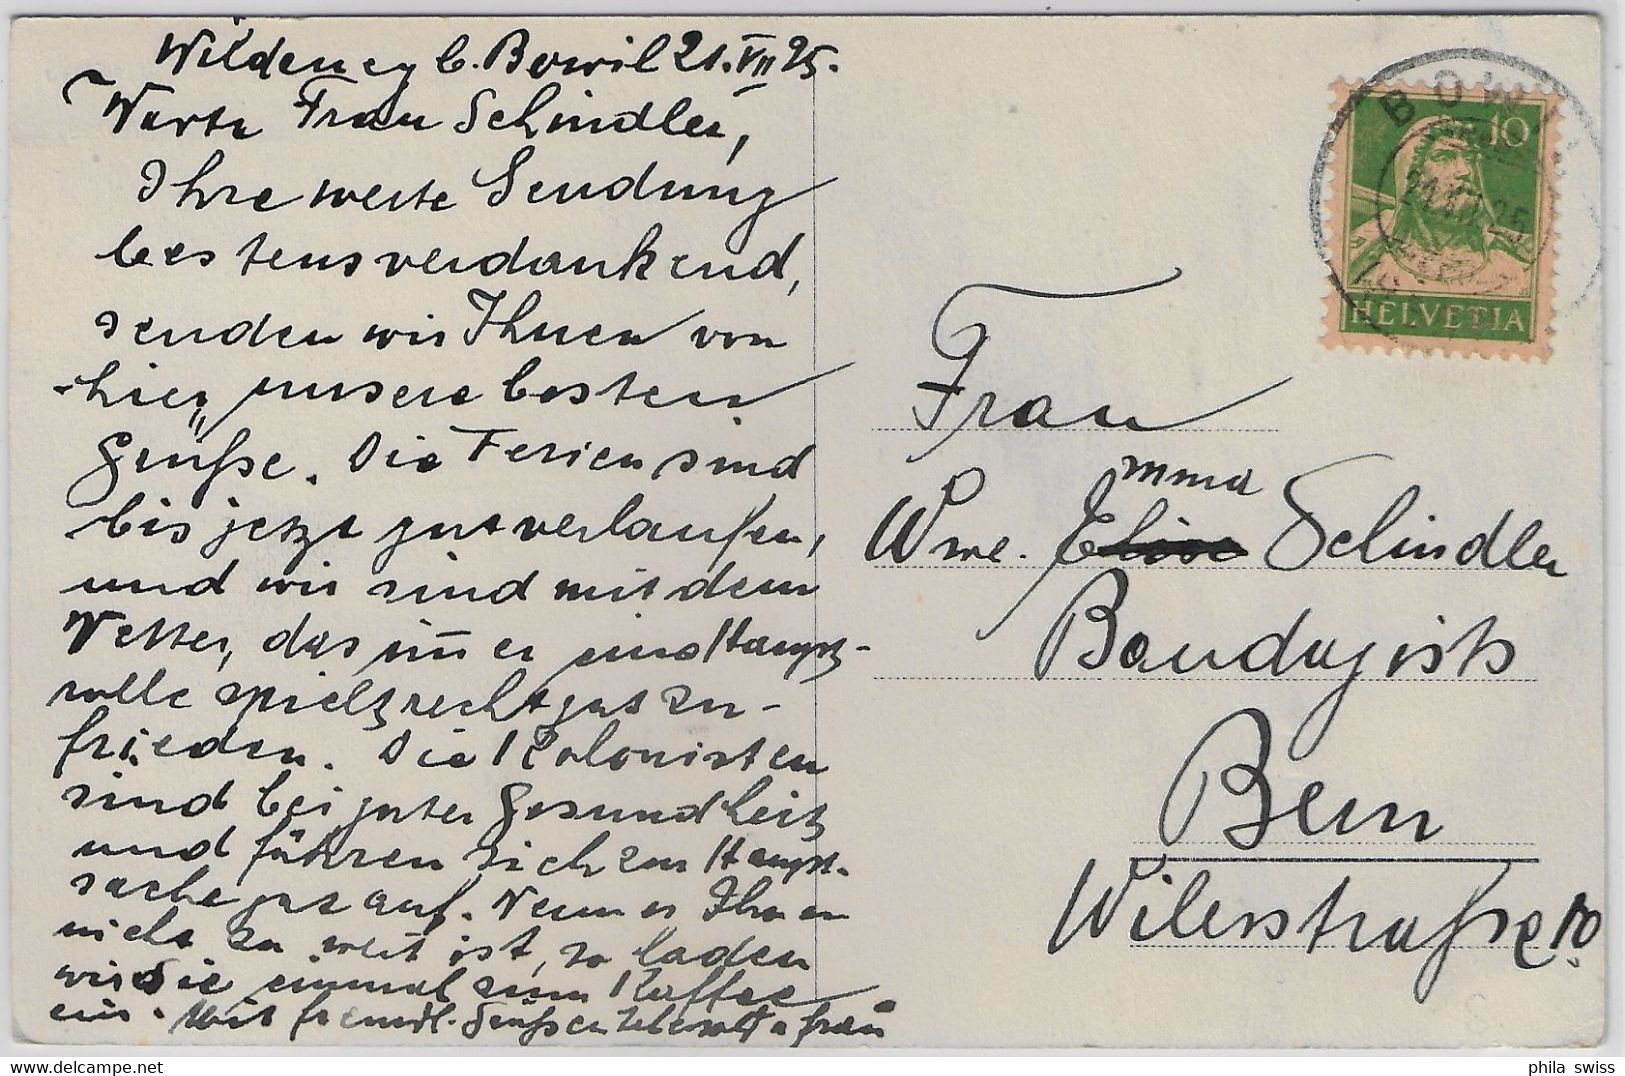 Wildeney b. Bowil 21. VII 25.
Werte Frau Schindler,
Ihre werte Sendung
bestens verdankend,
senden wir Ihnen von
hier unsere besten
Grüße. Die Ferien sind
bis jetzt gut verlaufen,
und wir sind mit dem
Wetter, das im̅er eine Haupt-
rolle spielt, recht gut zu-
frieden. Die Kolonisten
sind bei guter Gesundheit
und führen sich zur Haupt-
sache gut auf. Wenn es Ihnen
nicht zu weit ist, so laden
wir Sie einmal zum Kaffee
ein. Mit freundl. Grüßen
& Frau
BOWIL
21.VII.25
10
HELVETIA
Frau
Wwe. Emma Schindler
Bandagists
Bern
Wilerstraße 10.
phila swiss